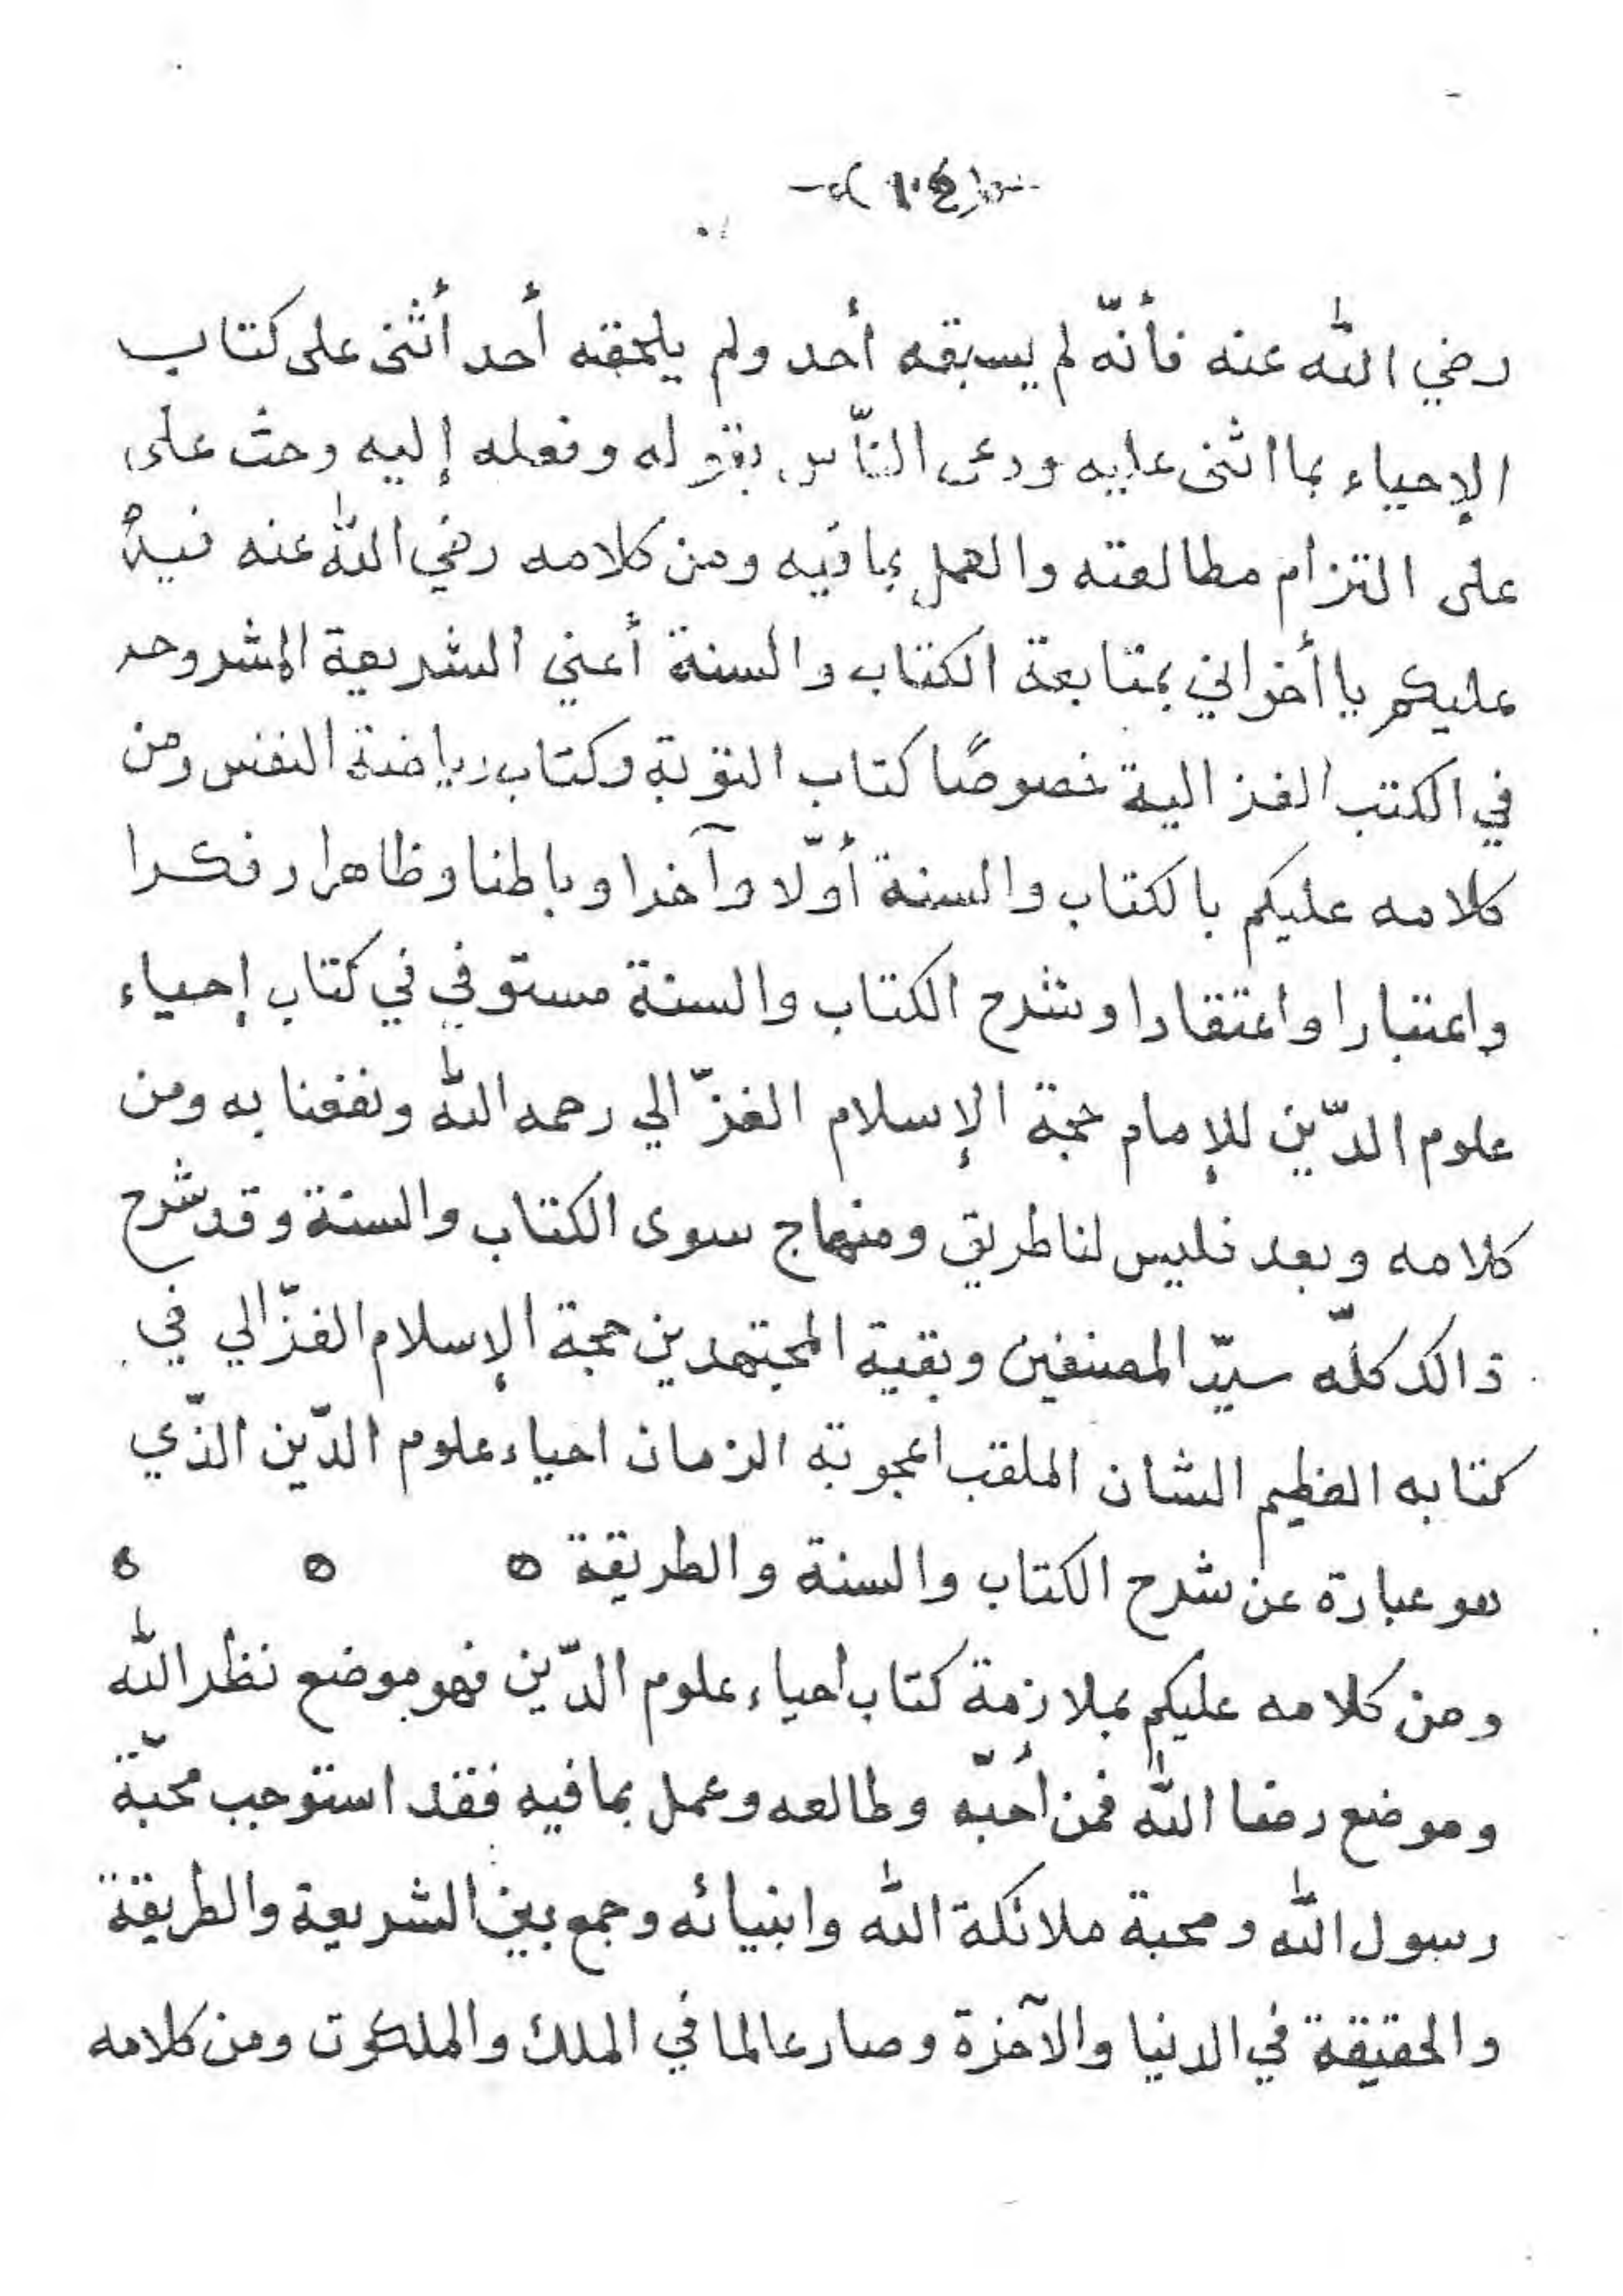 (١٠٤)
رضي الله عنه فأنّه لم يسبقه أحد ولم يلحقه أحد أثنى على كتاب
الإحياء بما اثنى عليه ودعى النّاس بقوله وفعله إليه وحث على
على التزام مطالعته والعمل بما فيه ومن كلامه رضي الله عنه فيه
عليكم يا أخواني بمتابعة الكتاب والسنة أعني الشريعة المشروحه
في الكتب الغزالية خصوصًا كتاب التوبة وكتاب رياضة النفس ومن
كلامه عليكم بالكتاب والسنة أوّلا وآخرا وباطنا وظاهرا وفكرا
واعتبارا واعتقادا وشرح الكتاب والسنة مستوفي في كتاب إحياء
علوم الدّين للإمام حجة الإسلام الغزّالي رحمه الله ونفعنا به ومن
كلامه وبعد فليس لنا طريق ومنهاج سوى الكتاب والسنة وقد شرح
ذالك كلّه سيّد المصنفين وبقية المجتهدين حجة الإسلام الغزّالي في
كتابه العظيم الشان الملقب اعجوبة الزمان احياء علوم الدّين الذّي
هو عبارة عن شرح الكتاب والسنة والطريقة ٥ ٥ ٥
ومن كلامه عليكم بملازمة كتاب احياء علوم الدّين فهو موضع نظر الله
وموضع رضا الله فمن أحبّه وطالعه وعمل بما فيه فقد استوجب محبّة
رسول الله ومحبة ملائكة الله وانبيائه وجمع بين الشريعة والطريقة
والحقيقة في الدنيا والآخرة وصار عالما في الملك والملكوت ومن كلامه